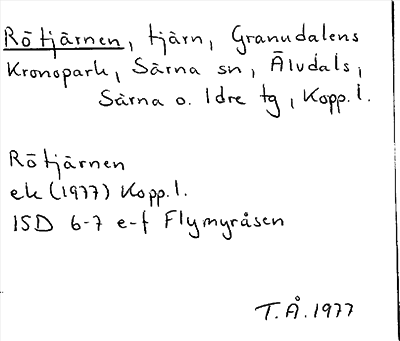 Rötjärnen, tjärn, Granudalens
Kronopark, Särna sn, Älvdals,
Särna o. Idre tg, Kopp. l.
Rötjärnen
ek (1977) Kopp. l.
15D 6-7 e-f Flymyråsen
T.Å. 1977